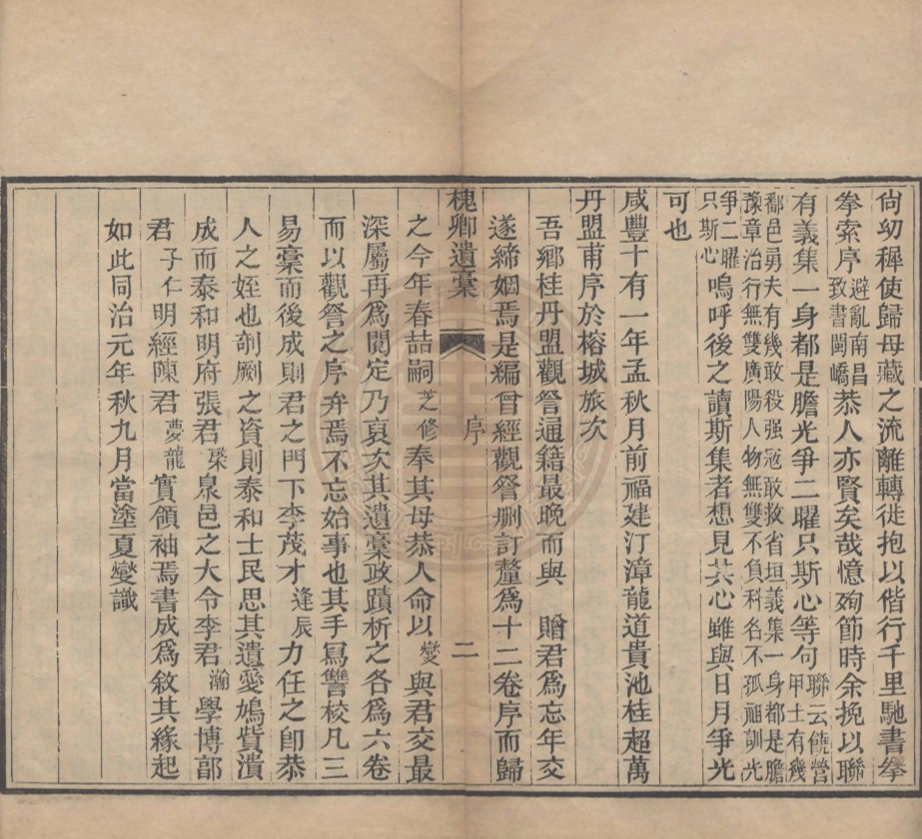 尙幼穉使歸母藏之流離轉徙抱以偕行千里馳書拳
拳索序避亂南昌致書閩嶠恭人亦賢矣哉憶殉節時余挽以聯
有義集一身都是膽光爭二曜只斯心等句聯云饒營甲士有幾
鄱邑勇夫有幾敢殺强冦敢救省垣義集一身都是膽
豫章治行無雙廣陽人物無雙不負科名不孤祖訓光
爭二曜只斯心嗚呼後之讀斯集者想見其心雖與日月爭光
可也
咸豐十有一年孟秋月前福建汀漳龍道貴池桂超萬
丹盟甫序於榕城旅次
吾鄉桂丹盟觀詧通籍最晚而與 贈君爲忘年交
遂締姻焉是編曾經觀詧刪訂釐爲十二卷序而歸
槐卿遺稾 序 二
之今年春喆嗣芝修奉其母恭人命以燮與君交最
深屬再爲閱定乃裒次其遺稾政蹟析之各爲六卷
而以觀詧之序弁焉不忘始事也其手寫讐校凡三
易稾而後成則君之門下李茂才逢辰力任之卽恭
人之姪也剞劂之資則泰和士民思其遺愛鳩貲潰
成而泰和明府張君棨泉邑之大令李君瀚學博部
君子仁明經陳君夢龍實領袖焉書成爲敘其緣起
如此同治元年秋九月當塗夏燮識